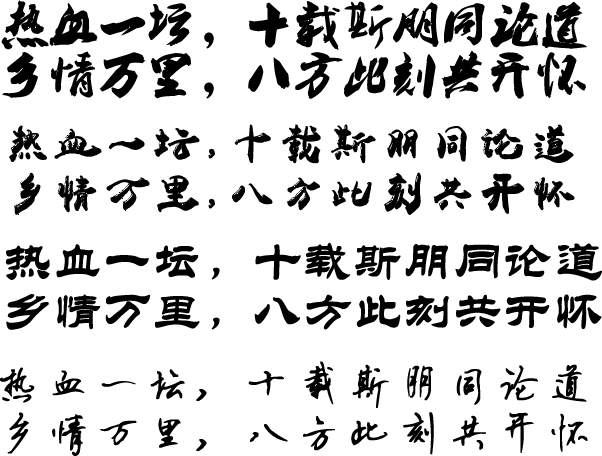 热血一坛，十载斯朋同论道
乡情万里，八方此刻共开怀
热血一坛，十载斯朋同论道
乡情万里，八方此刻共开怀
热血一坛，十载斯朋同论道
乡情万里，八方此刻共开怀
热血一坛，十载斯朋同论道
乡情万里，八方此刻共开怀